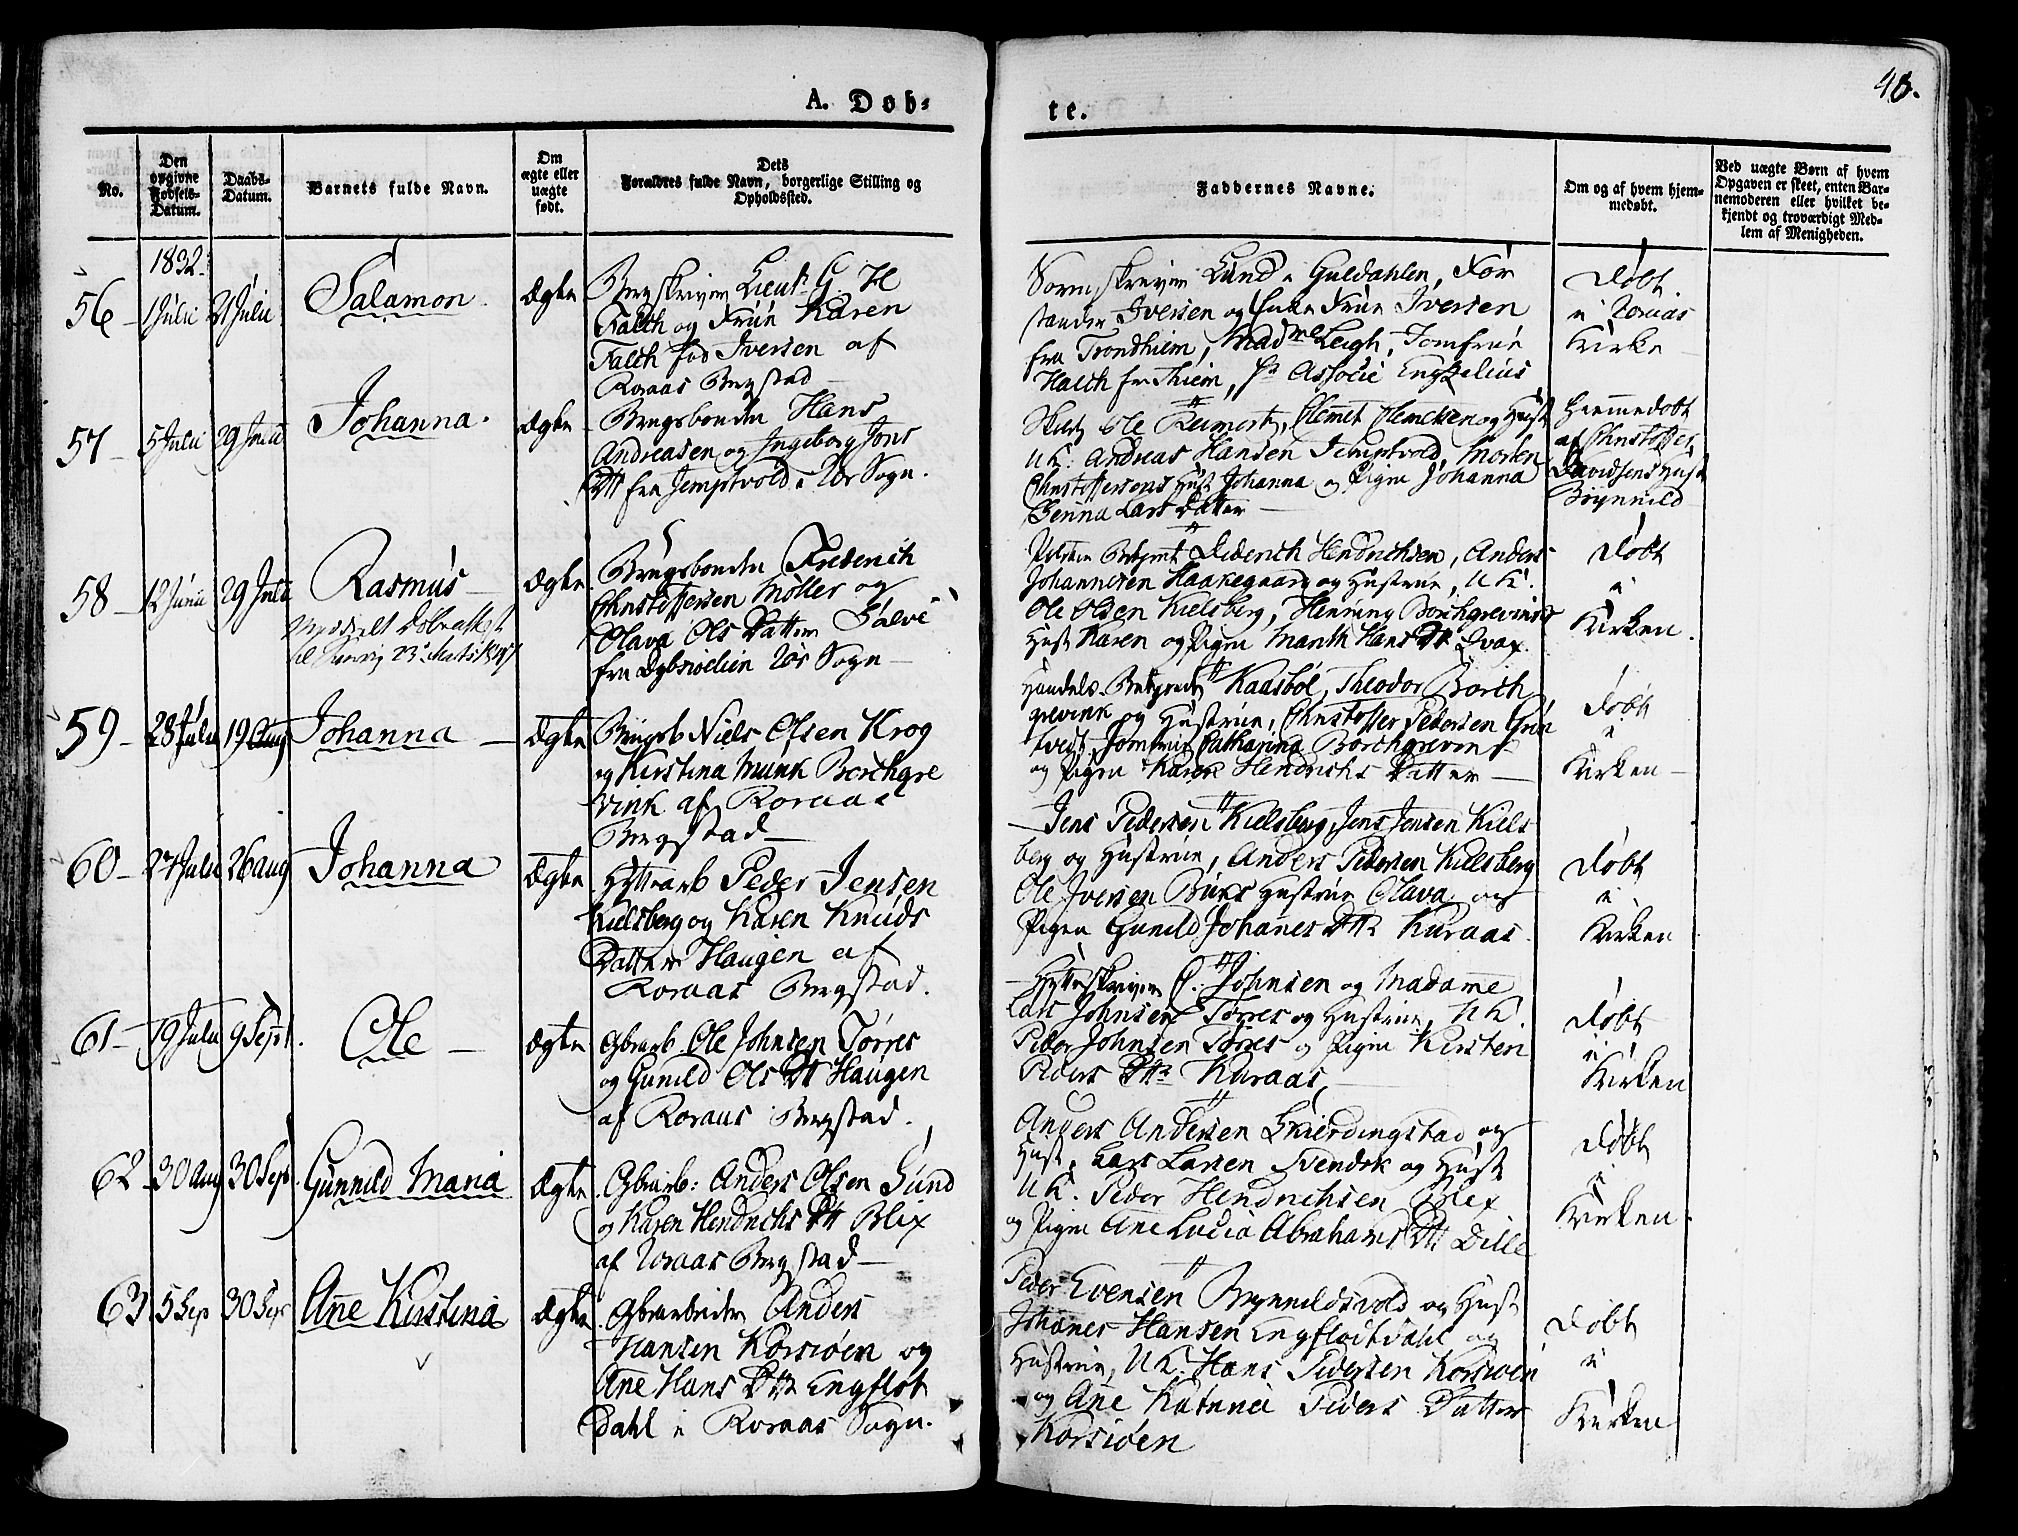 A. Døb-
te.
40.
No.
Den opgivne Fødsels-Datum.
Daabs-Datum.
Barnets fulde Navn.
Om ægte eller uægte født.
Dets Forældres fulde Navn, borgerlige Stilling og Opholdssted.
Faddernes Navne.
Om og af hvem hjemmedøbt.
Ved uægte Børn af hvem Opgaven er skeet, enten Barnemoderen eller hvilket bekjendt og troværdigt Medlem af Menigheden.
1832.
56 1 Julii 21 Julii Salamon. Ægte
Bergskriver Lieut. G. H
Falch og Frue Karen
Falch fød Iversen af
Roraas Bergstad
Sorenskriver Lund i Guldahlen, For
stander Iversen og Frue Iversen
fra Trondhiem, Madme Leigh, Jomfrue
Halch fra Thiem, Hr Associe Engzelius
Døbt
i Roraas
Kirke
57 5 Julii 29 Julii Johanna. Ægte
Brugsbonden Hans
Andreasen og Ingeborg Jons
Dtt fra Jemptvold i Rørs Sogn.
Ole Reimert, Clemet Clemetsen og Hust
U K. Andreas Hansen Jemptvold, Morten
Christoffersens Hust Johanna og Pigen Johanna
Benna Lars Datter
Hiemmedøbt
af Christoffer
Davidsens Hust
Brynnild
58 12 Junii 29 Julii Rasmus Ægte
Meddelt Døbeattest
Brugsbonden Frederich
Christoffersen Møller og
Olava Ols Datter Galve
fra Rørs Sogn
Diderich Hendrichsen, Anders
Johannesen Haakegaard og Hustrue, U K.
Ole Olsen Kielsberg, Henning Borchgrevinks
Hust Karen og Pigen Marith Hans Dtt
Døbt
i
Kirken.
59 28 Julii 19 Aug Johanna Ægte
Niels Olsen Krog
og Kirstina Munk Borchgre
vink af Roraas
Bergstad
Handels Kaasbøl, Theodor Borch
grevink og Hustrue, Christoffer Pedersen Grøn
tvedt, Jomfrue Catharina Borchgrevink
og Pigen Karen Hendrichs Datter
Døbt
i
Kirken
60 24 Julii 26 Aug Johanna Ægte
Hyttearb Peder Jensen
Kielsberg og Karen Knuds
Datter Haugen af
Roraas Bergstad.
Jens Pedersen Kielsberg, Jens Jensen Kiels
berg og Hustrue, Anders Pedersen Kielsberg
Ole Iversen Buns Hustrue Olava og
Pigen Gunild Johanes Dtt Kuraas.
Døbt
i
Kirken
61 19 Julii 9 Sept. Ole Ægte
Grbarb. Ole Johnsen Tørres
og Gunild Ols Dtt Haugen
af Roraas Bergstad.
Hytteskriver P. Johnsen og Madame
Lars Johnsen Tørres og Hustrue, U K.
Peder Johnsen Tørres og Pigen Kirsten
Peders Dtt Kuraas
Døbt
i
Kirken
62 30 Aug 30 Sept. Gunnild Maria Ægte
Grbarb: Anders Olsen Sund
og Karen Hendrichs Dtt Blix
af Roraas Bergstad
Anders Andersen Skierdingstad og
Hust. Lars Larsen Svendsk og Hust
U K. Peder Hendrichsen Blix
og Pigen Ane Lucia Abrahams Dtt Dille
Døbt
i
Kirken.
63 5 Sep 30 Sep Ane Kirstina Ægte
Grbarbeider Anders
Hansen Korsiøen og
Ane Hans Dtt Engfløt
dahl i Roraas Sogn.
Peder Evensen Brynnildsvold og Hust
Johanes Hansen Engfløtdahl og
Hustrue, U K. Hans Pedersen Korsiøen
og Ane Katrina Peders Datter
Korsiøen
Døbt
i
Kirken